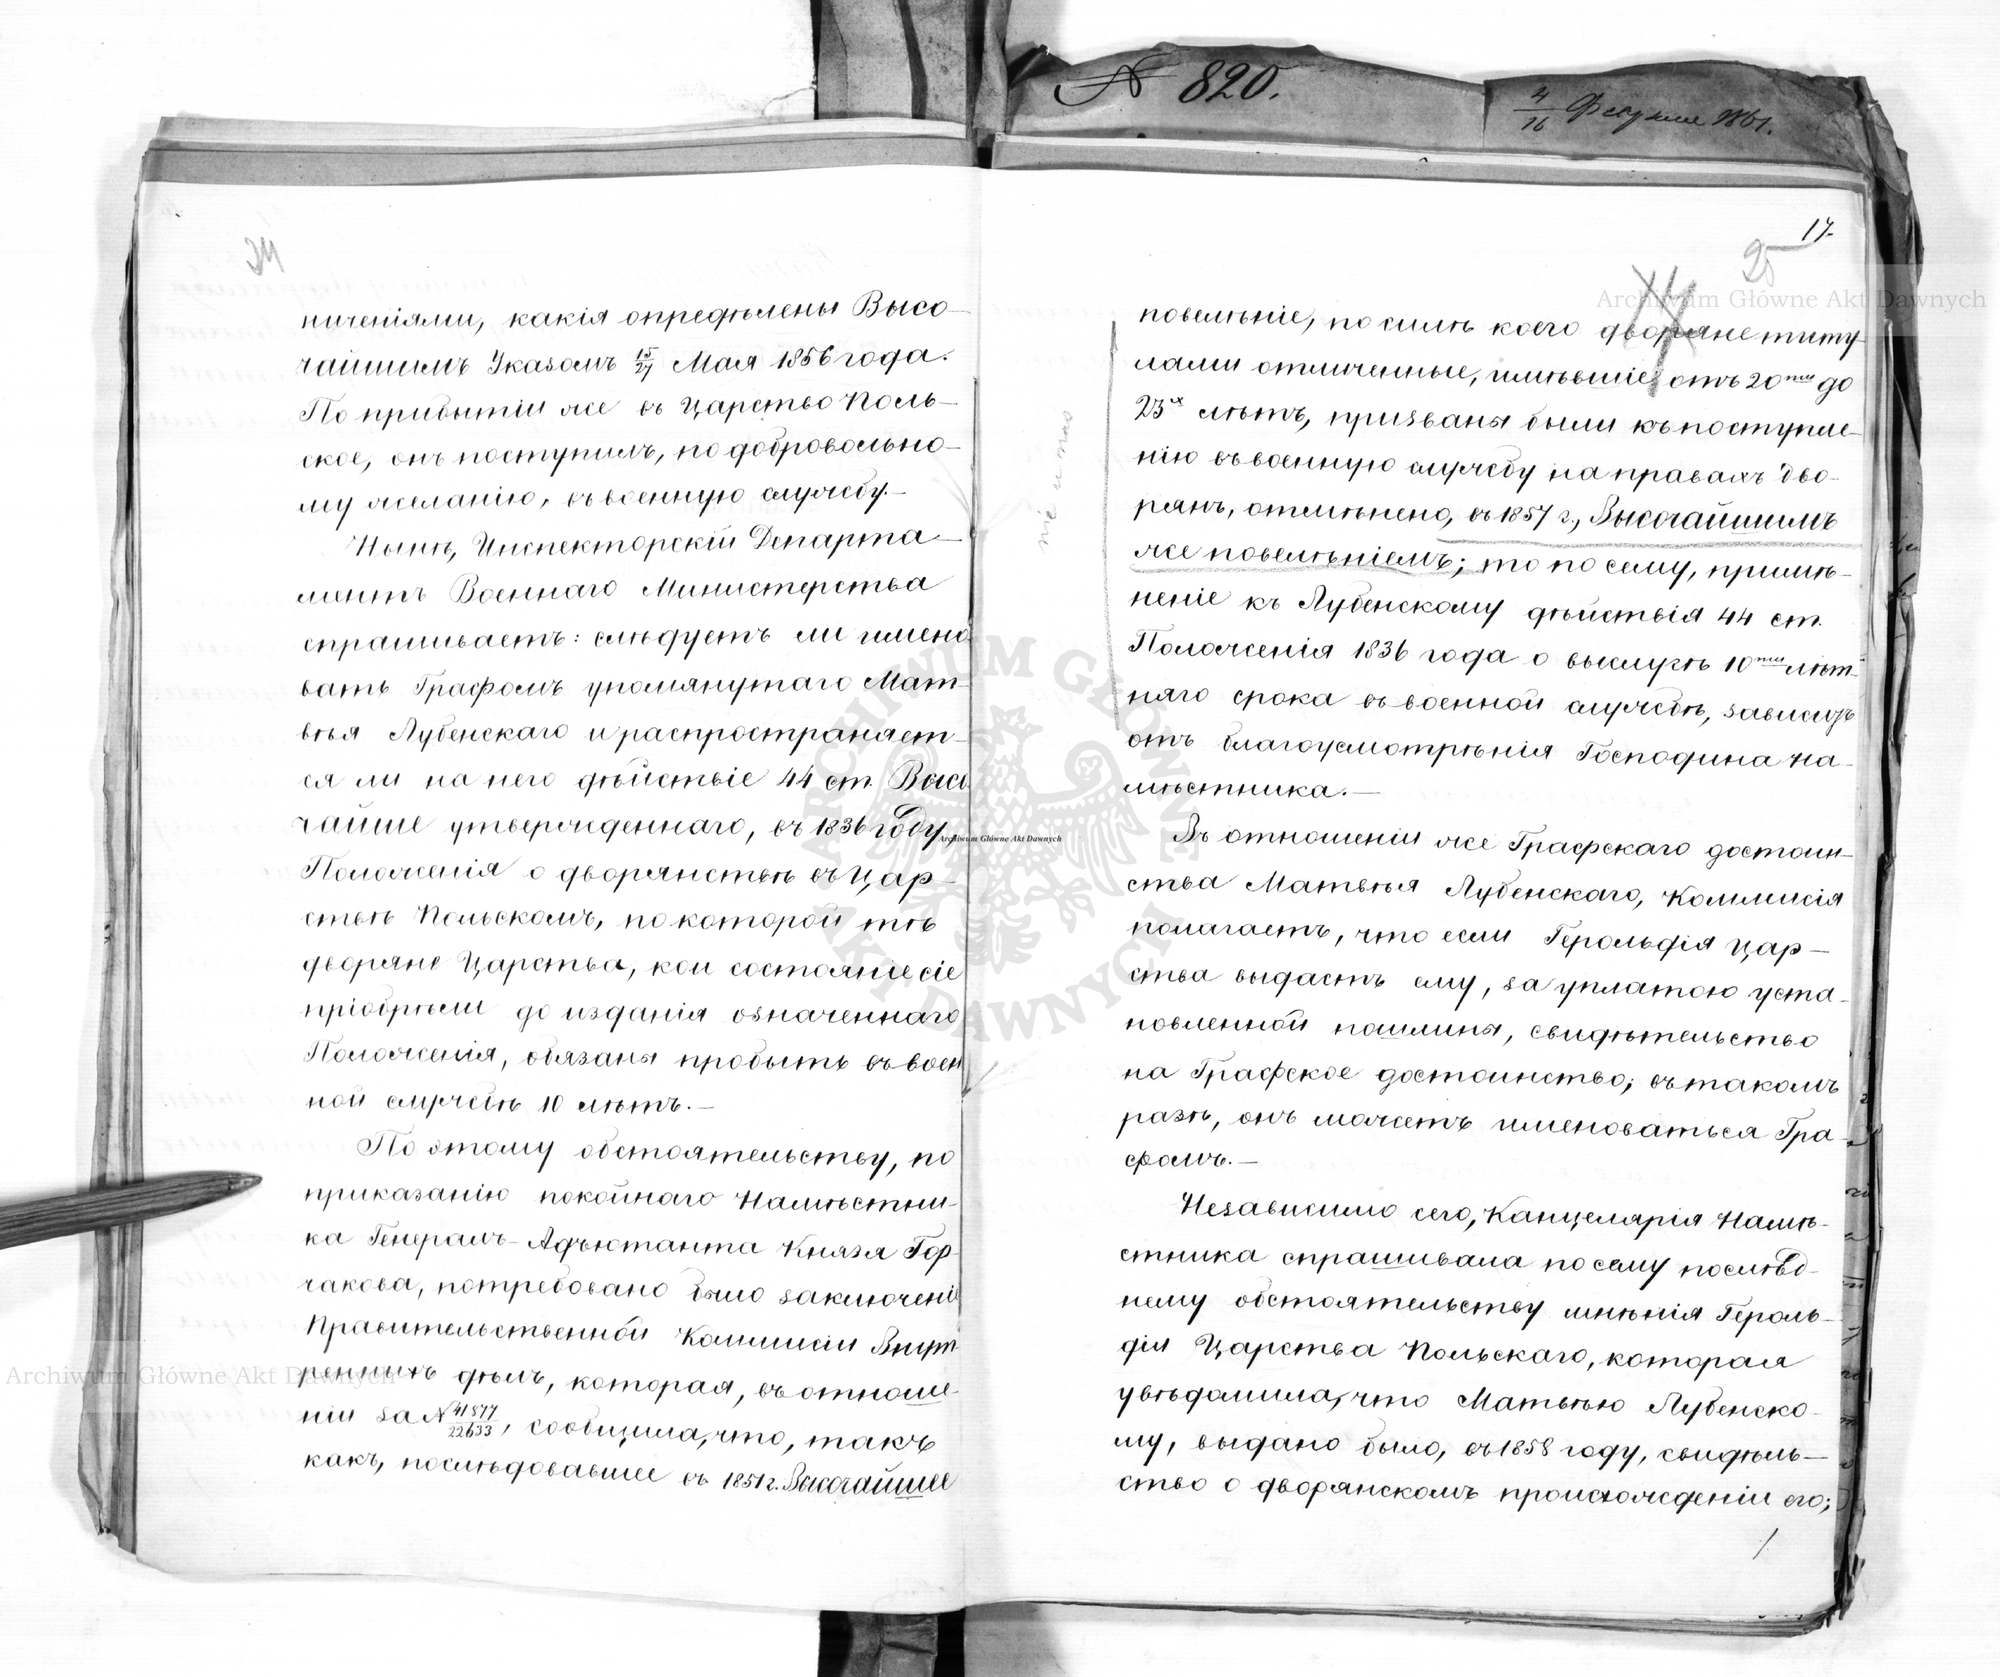 № 820.
4/16 Февраля 1861.
24
ниченіями, какія опредѣлены Высо-
чайшимъ Указомъ 15/27 Мая 1856 года.
По прибытіи же въ Царство Поль-
ское, онъ поступилъ, по добровольно-
му желанію, въ военную службу.—
Нынѣ, Инспекторскій Департа-
ментъ Военнаго Министерства
спрашиваетъ: слѣдуетъ ли имено
вать Графомъ упомянутаго Мат-
вѣя Лубенскаго и распространяет-
ся ли на него дѣйствіе 44 ст. Высо
чайше утвержденнаго, въ 1836 году,
Положенія о дворянствѣ въ Цар-
ствѣ Польскомъ, по которой тѣ
дворяне Царства, кои состояніе сіе
пріобрѣли до изданія означеннаго
Положенія, обязаны пробыть въ воен
ной службѣ 10 лѣтъ.—
По этому обстоятельству, по
приказанію покойнаго Намѣстни-
ка Генералъ-Адъютанта Князя Гор-
чакова, потребовано было заключеніе
Правительственной Коммисіи Внут
реннихъ дѣлъ, которая, въ отноше-
ніи за № 41877/22633, сообщила, что, такъ
какъ, послѣдовавшее въ 1851 г. Высочайшее
17.
25
повелѣніе, по силѣ коего дворяне титу
лами отличенные, имѣвшіе отъ 20ти до
23х лѣтъ, призваны были къ поступле-
нію въ военную службу на правахъ дво-
рянъ, отмѣнено, въ 1857 г., Высочайшимъ
же повелѣніемъ; то по сему, примѣ-
неніе къ Лубенскому дѣйствія 44 ст.
Положенія 1836 года о выслугѣ 10ти лѣт-
няго срока въ военной службѣ, зависитъ
отъ благоусмотрѣнія Господина На-
мѣстника.—
Въ отношеніи же Графскаго достоин-
ства Матвѣя Лубенскаго, Коммисія
полагаетъ, что если Герольдія Цар-
ства выдастъ ему, за уплатою уста-
новленной пошлины, свидѣтельство
на Графское достоинство; въ такомъ
разѣ, онъ можетъ именоваться Гра-
фомъ.—
Независимо сего, Канцелярія Намѣ-
стника спрашивала по сему послѣд-
нему обстоятельству мнѣнія Героль-
діи Царства Польскаго, которая
увѣдомила, что Матвѣю Лубенско-
му, выдано было, въ 1858 году, свидѣтель-
ство о дворянскомъ происхожденіи его;
Archiwum Główne Akt Dawnych
Archiwum Główne Akt Dawnych
Archiwum Główne Akt Dawnych
ARCHIWUM GŁÓWNE AKT DAWNYCH